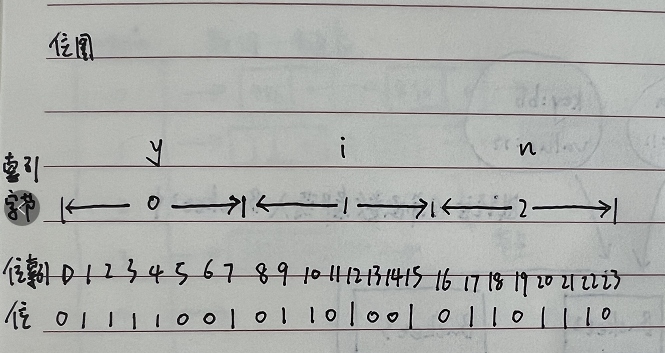 位图
y i n
索引
字节 0 1 2
位索引 0 1 2 3 4 5 6 7 8 9 10 11 12 13 14 15 16 17 18 19 20 21 22 23
位 0 1 1 1 1 0 0 1 0 1 1 0 1 0 0 1 0 1 1 0 1 1 1 0
key:bb